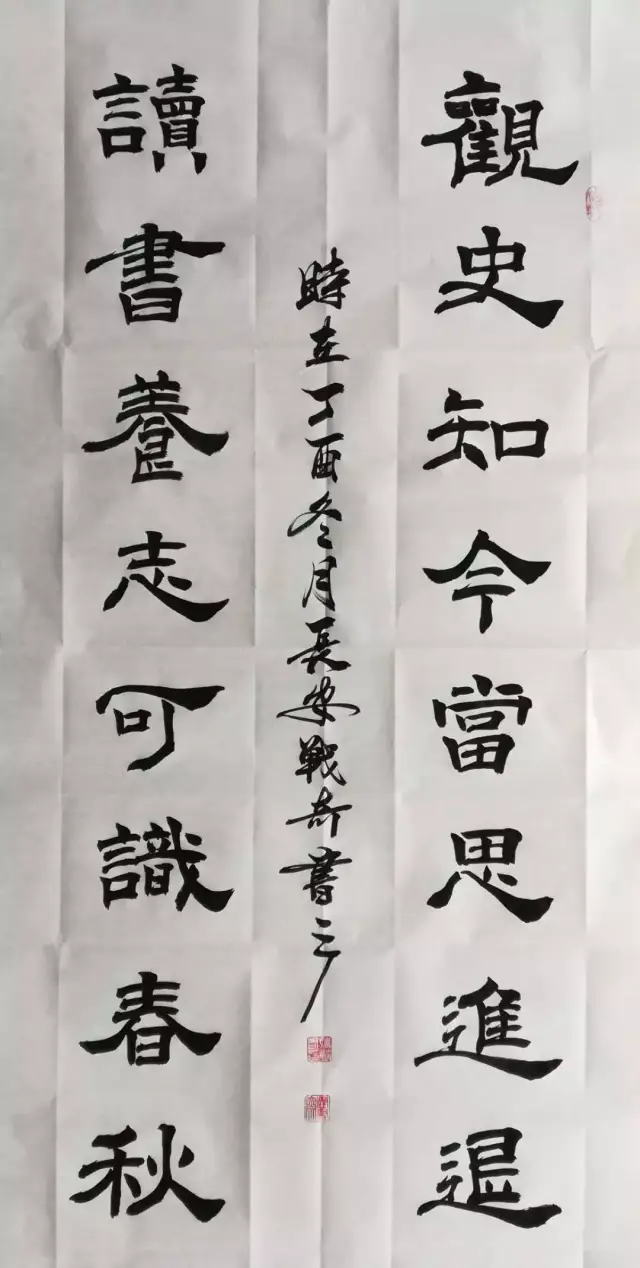 觀史知今當思進退
讀書養志可識春秋
時在丁酉冬月長安戰奇書